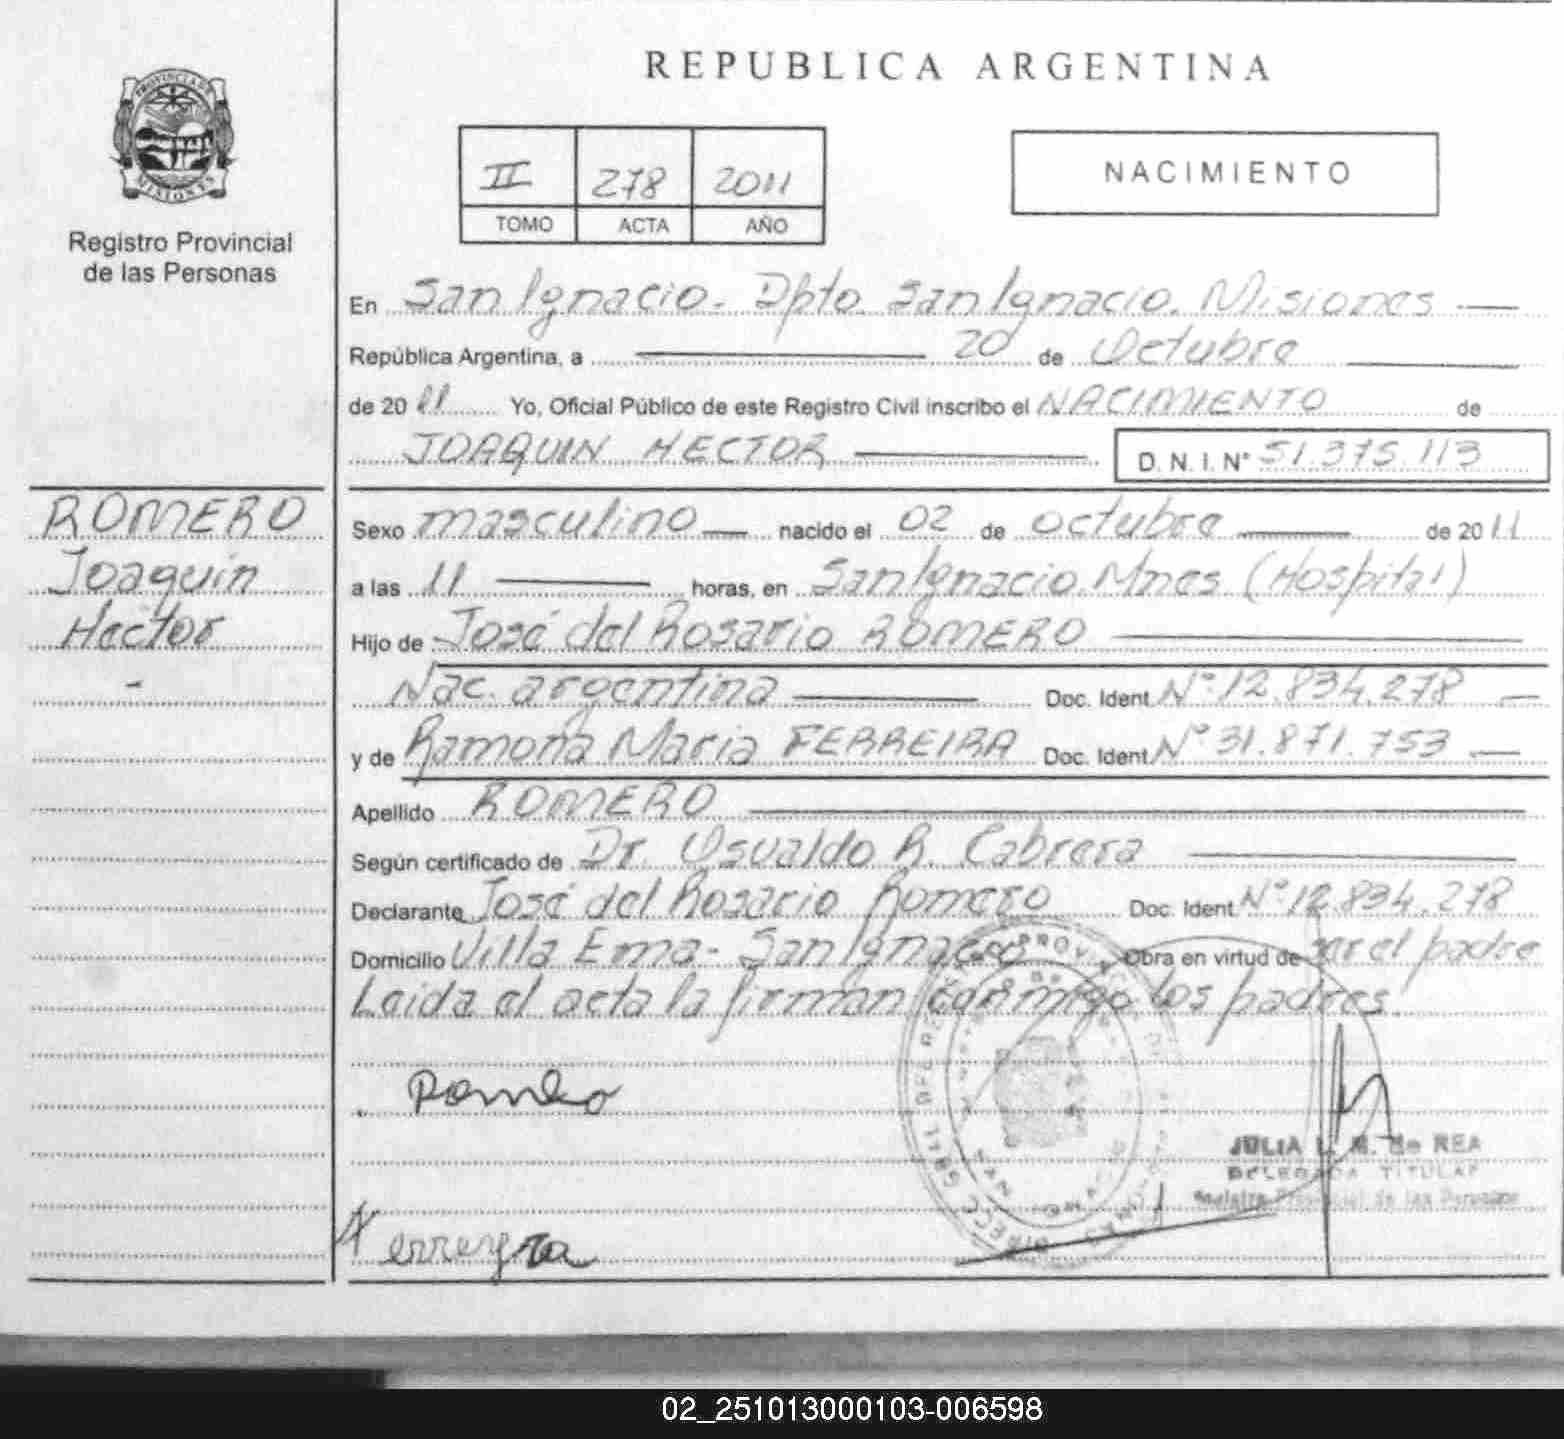 REPUBLICA ARGENTINA
PROVINCIA DE
MISIONES
Registro Provincial
de las Personas
II 278 2011
TOMO ACTA AÑO
NACIMIENTO
En San Ignacio. Dpto. San Ignacio. Misiones
República Argentina, a 20 de Octubre
de 2011 Yo, Oficial Público de este Registro Civil inscribo el NACIMIENTO de
JOAQUIN HECTOR D.N.I.N° 51.375.113
ROMERO
Joaquin
Hector
-
Sexo masculino nacido el 02 de octubre de 2011
a las 11 horas, en San Ignacio. Mnes (Hospital)
Hijo de José del Rosario ROMERO
Nac. argentina Doc. Ident. N° 12.834.278
y de Ramona Maria FERREIRA Doc. Ident. N° 31.871.753
Apellido ROMERO
Según certificado de Dr. Osvaldo R. Cabrera
Declarante José del Rosario Romero Doc. Ident. N° 12.834.278
Domicilio Villa Ema - San Ignacio Obra en virtud de ser el padre
Leida el acta la firman conmigo los padres.
JULIA L. M. de REA
DELEGADA TITULAR
Registro Provincial de las Personas
02_251013000103-006598